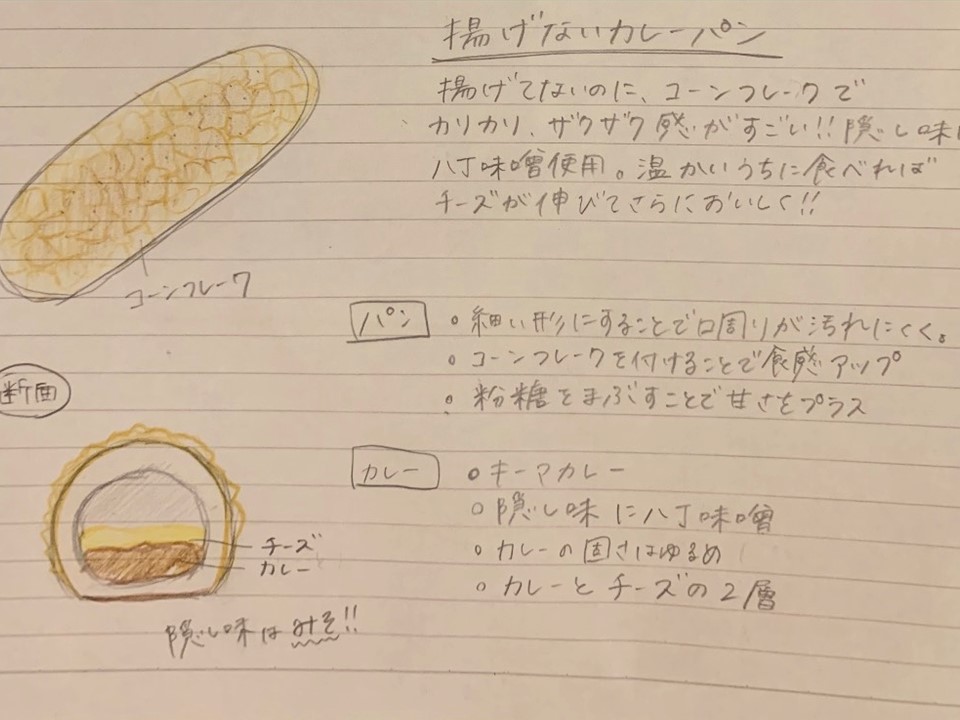 揚げないカレーパン
揚げてないのに、コーンフレークで
カリカリ、ザクザク感がすごい!!隠し味に
八丁味噌使用。温かいうちに食べれば
チーズが伸びてさらにおいしく!!
コーンフレーク
パン
・細い形にすることで口周りが汚れにくく。
・コーンフレークを付けることで食感アップ
・粉糖をまぶすことで甘さをプラス
断面
カレー
・キーマカレー
・隠し味に八丁味噌
・カレーの固さはゆるめ
・カレーとチーズの2層
チーズ
カレー
隠し味はみそ!!